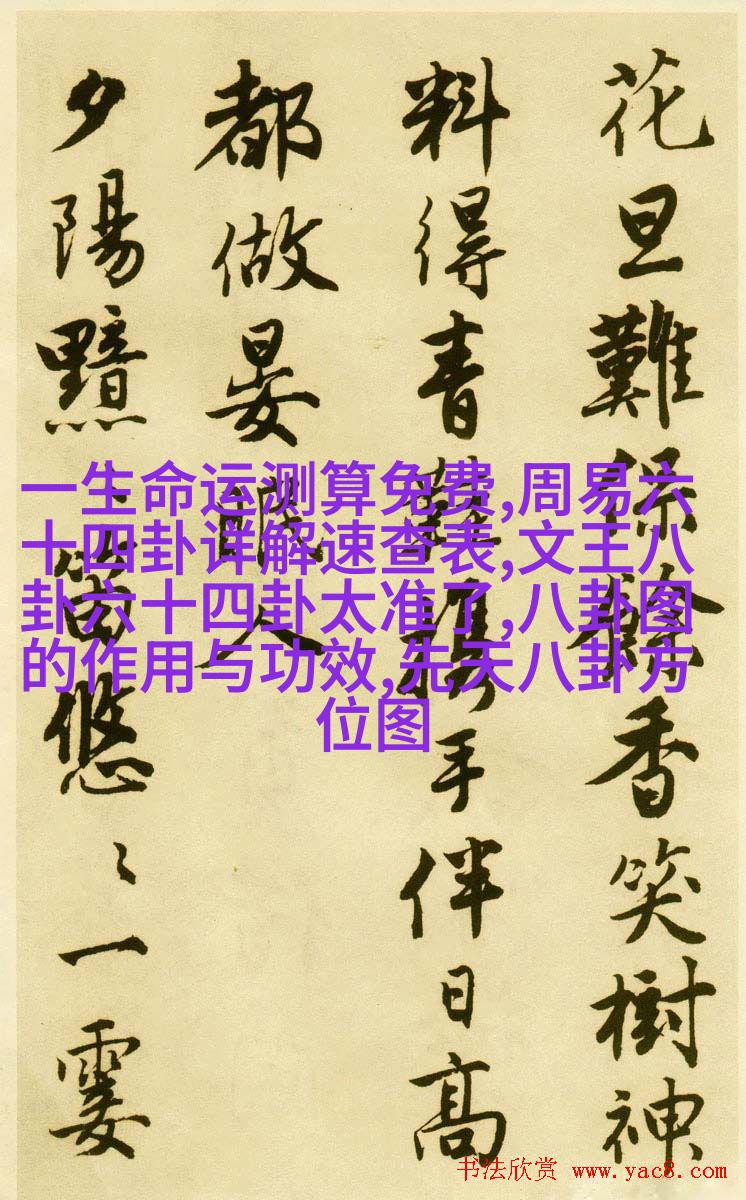 花旦難餘香笑樹神
料得青鞋攜手伴日高
都做晏眠人
夕陽黯〻笛悠〻一霎
一生命运测算免费,周易六
十四卦详解速查表,文王八
卦六十四卦太准了,八卦图
的作用与功效,先天八卦方
位图
书法欣赏 www.yac8.com